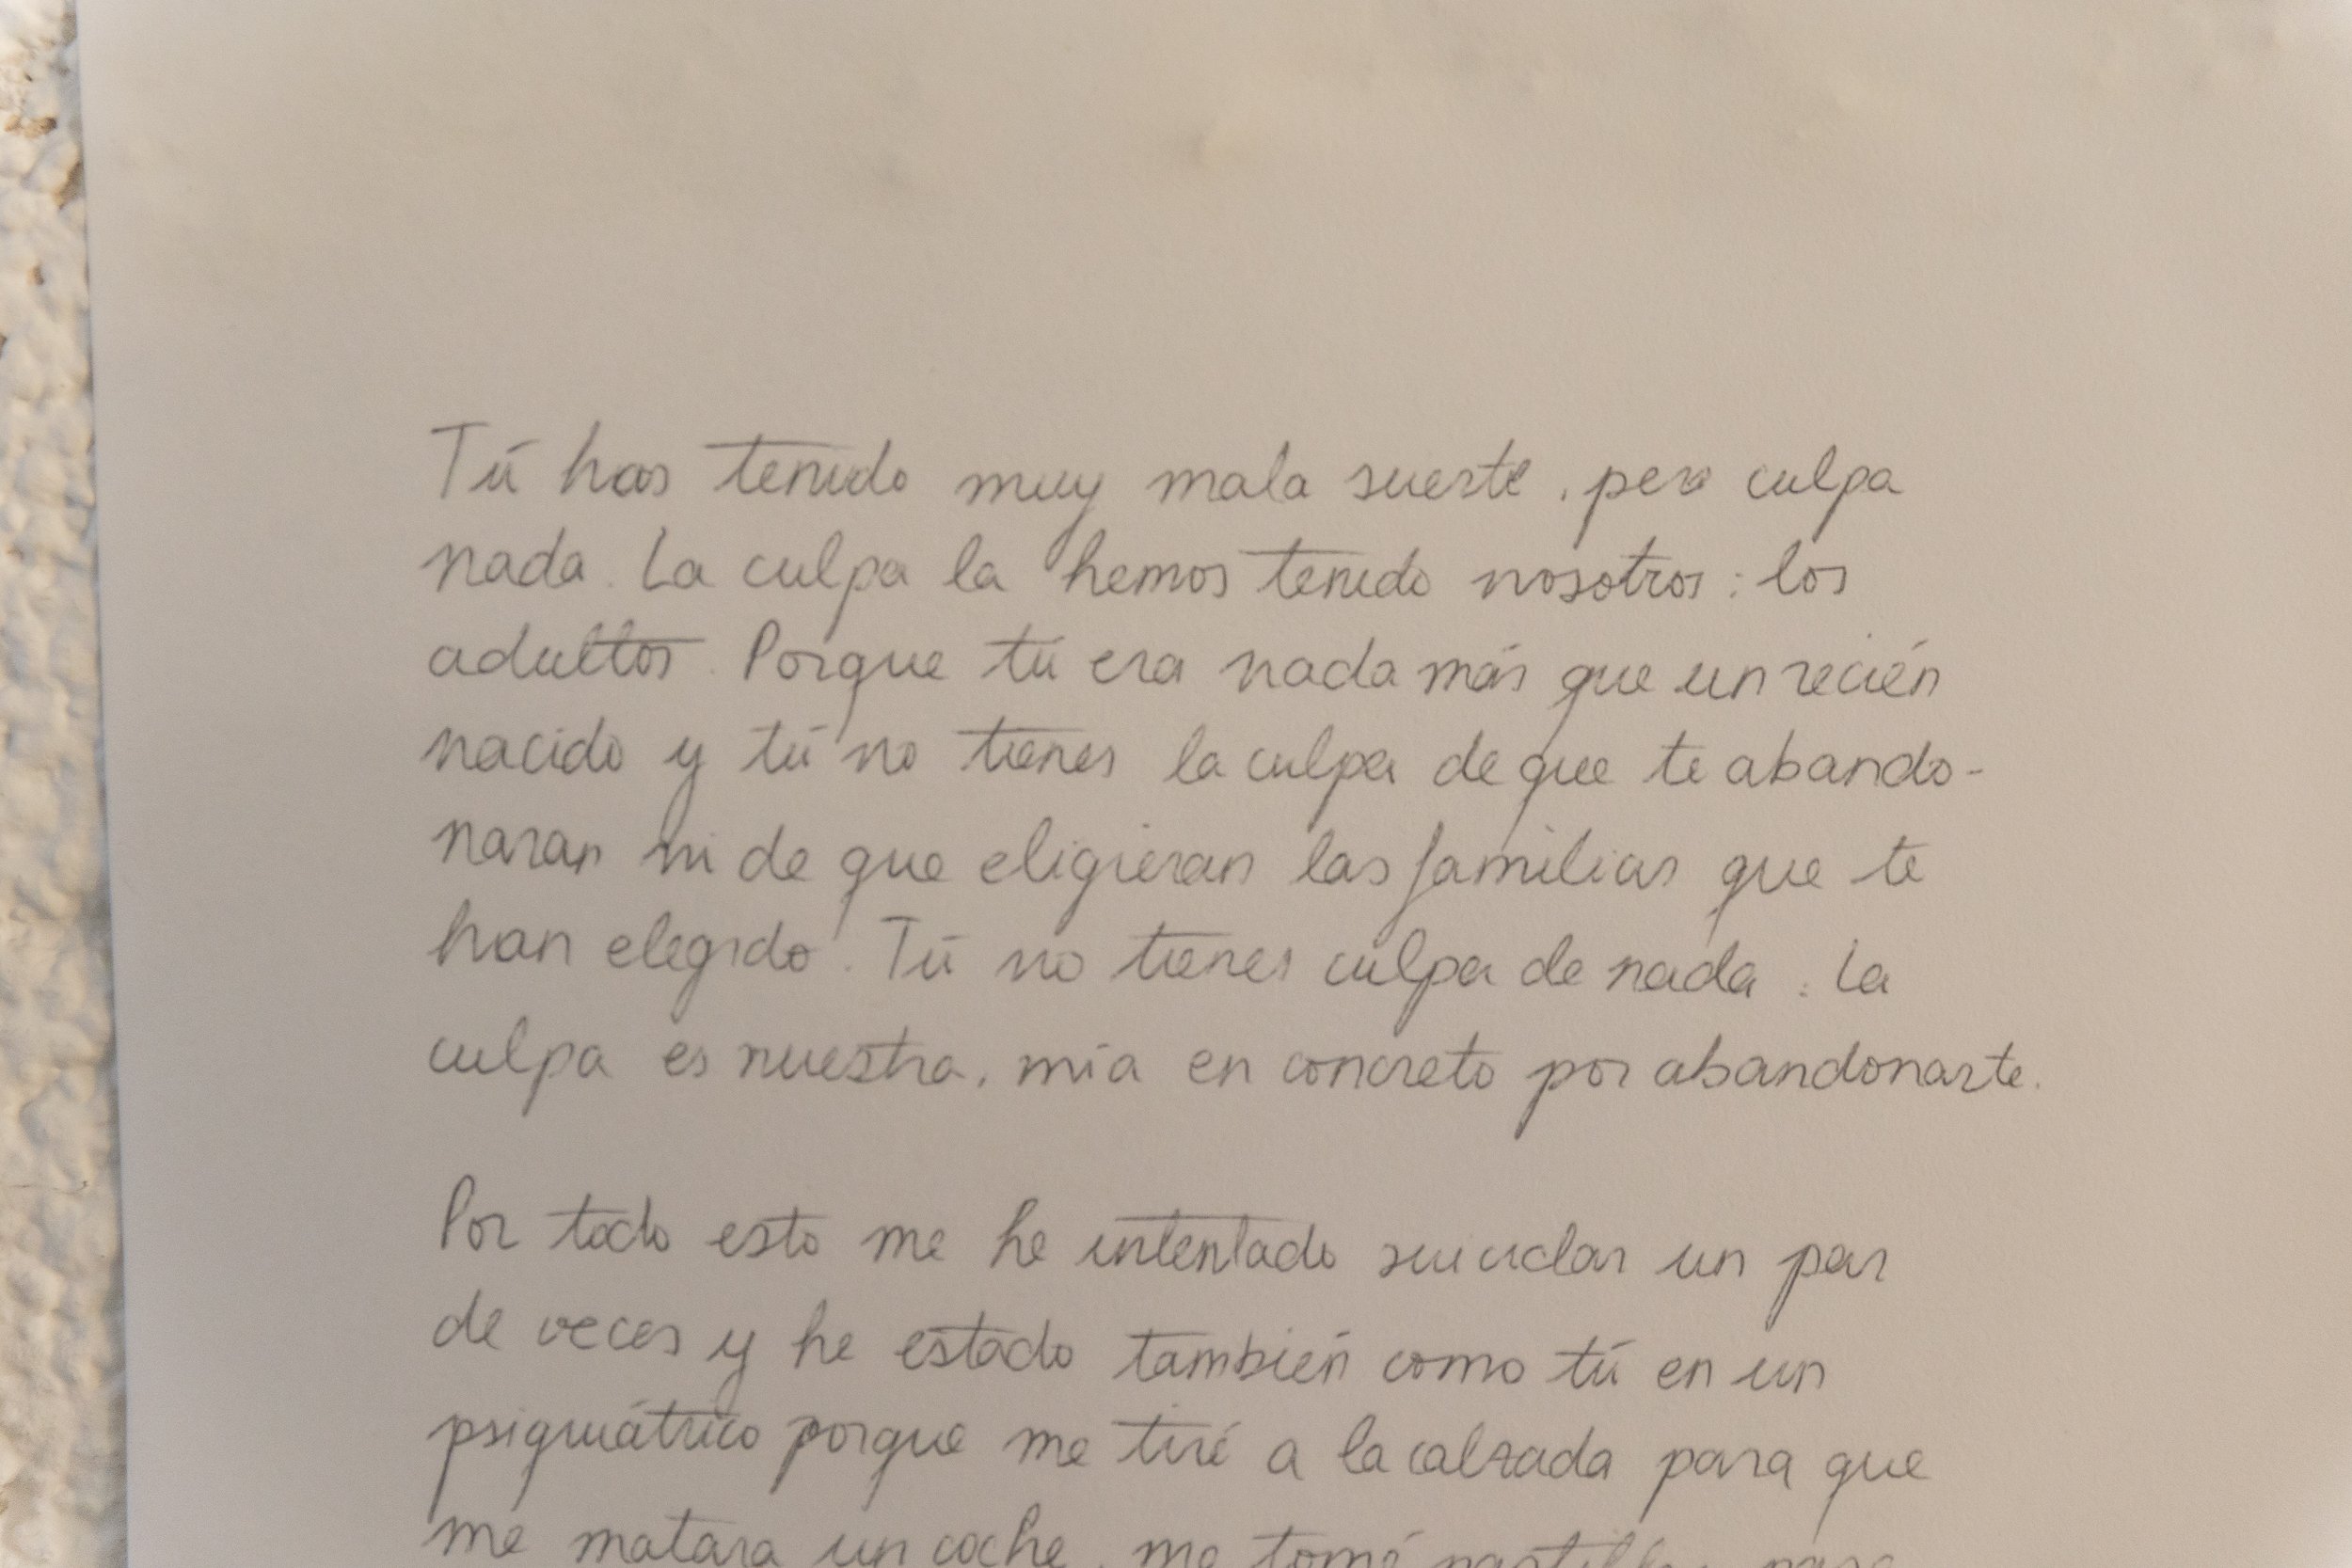 Tú has tenido muy mala suerte, pero culpa
nada. La culpa la hemos tenido nosotros: los
adultos. Porque tú era nada más que un recién
nacido y tú no tienes la culpa de que te abando-
naran ni de que eligieran las familias que te
han elegido. Tú no tienes culpa de nada: la
culpa es nuestra, mía en concreto por abandonarte.
Por todo esto me he intentado suicidar un par
de veces y he estado también como tú en un
psiquiátrico porque me tiré a la calzada para que
me matara un coche, me tomé